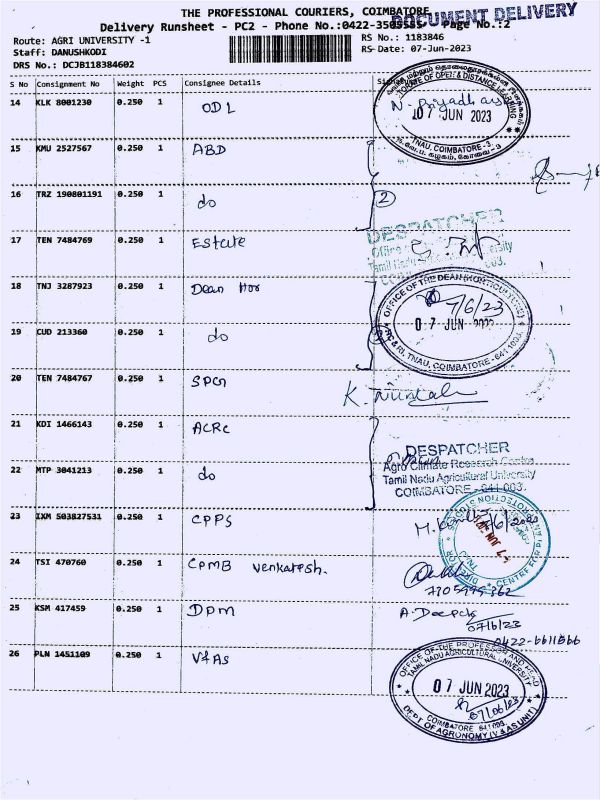 THE PROFESSIONAL COURIERS, COIMBATORE
DOCUMENT DELIVERY
Delivery Runsheet - PC2 - Phone No.:0422-350 Page No.:2
Route: AGRI UNIVERSITY -1
RS No.: 1183846
Staff: DANUSHKODI
RS-Date: 07-Jun-2023
DRS No.: DCJB118384602
S No Consignment No Weight PCS Consignee Details
14 KLK 8001230 0.250 1 ODL
DISTANCE LEARNING
07 JUN 2023
TNAU, COIMBATORE - 3
15 KMU 2527567 0.250 1 ABD
16 TRZ 190801191 0.250 1 do
2
17 TEN 7484769 0.250 1 Estate
DESPATCHER
18 TNJ 3287923 0.250 1 Dean Hor
OFFICE OF THE DEAN (HORTICULTURE)
7/6/23
07 JUN 2023
HC & RI, TNAU, COIMBATORE - 641 003.
19 CUD 213360 0.250 1 do
20 TEN 7484767 0.250 1 SPGn
21 KDI 1466143 0.250 1 ACRC
DESPATCHER
Agro Climate Research Centre
Tamil Nadu Agricultural University
COIMBATORE - 641 003.
22 MTP 3041213 0.250 1 do
23 IXM 503827531 0.250 1 CPPS
24 TSI 470760 0.250 1 CPMB Venkatesh.
25 KSM 417459 0.250 1 DPM
A. Deepak
07/6/23
0422-6611866
26 PLN 1451109 0.250 1 V&AS
OFFICE OF THE PROFESSOR AND HEAD
TAMIL NADU AGRICULTURAL UNIVERSITY
07 JUN 2023
07/06/23
COIMBATORE 641 003.
DEPT. OF AGRONOMY (V & AS UNIT)